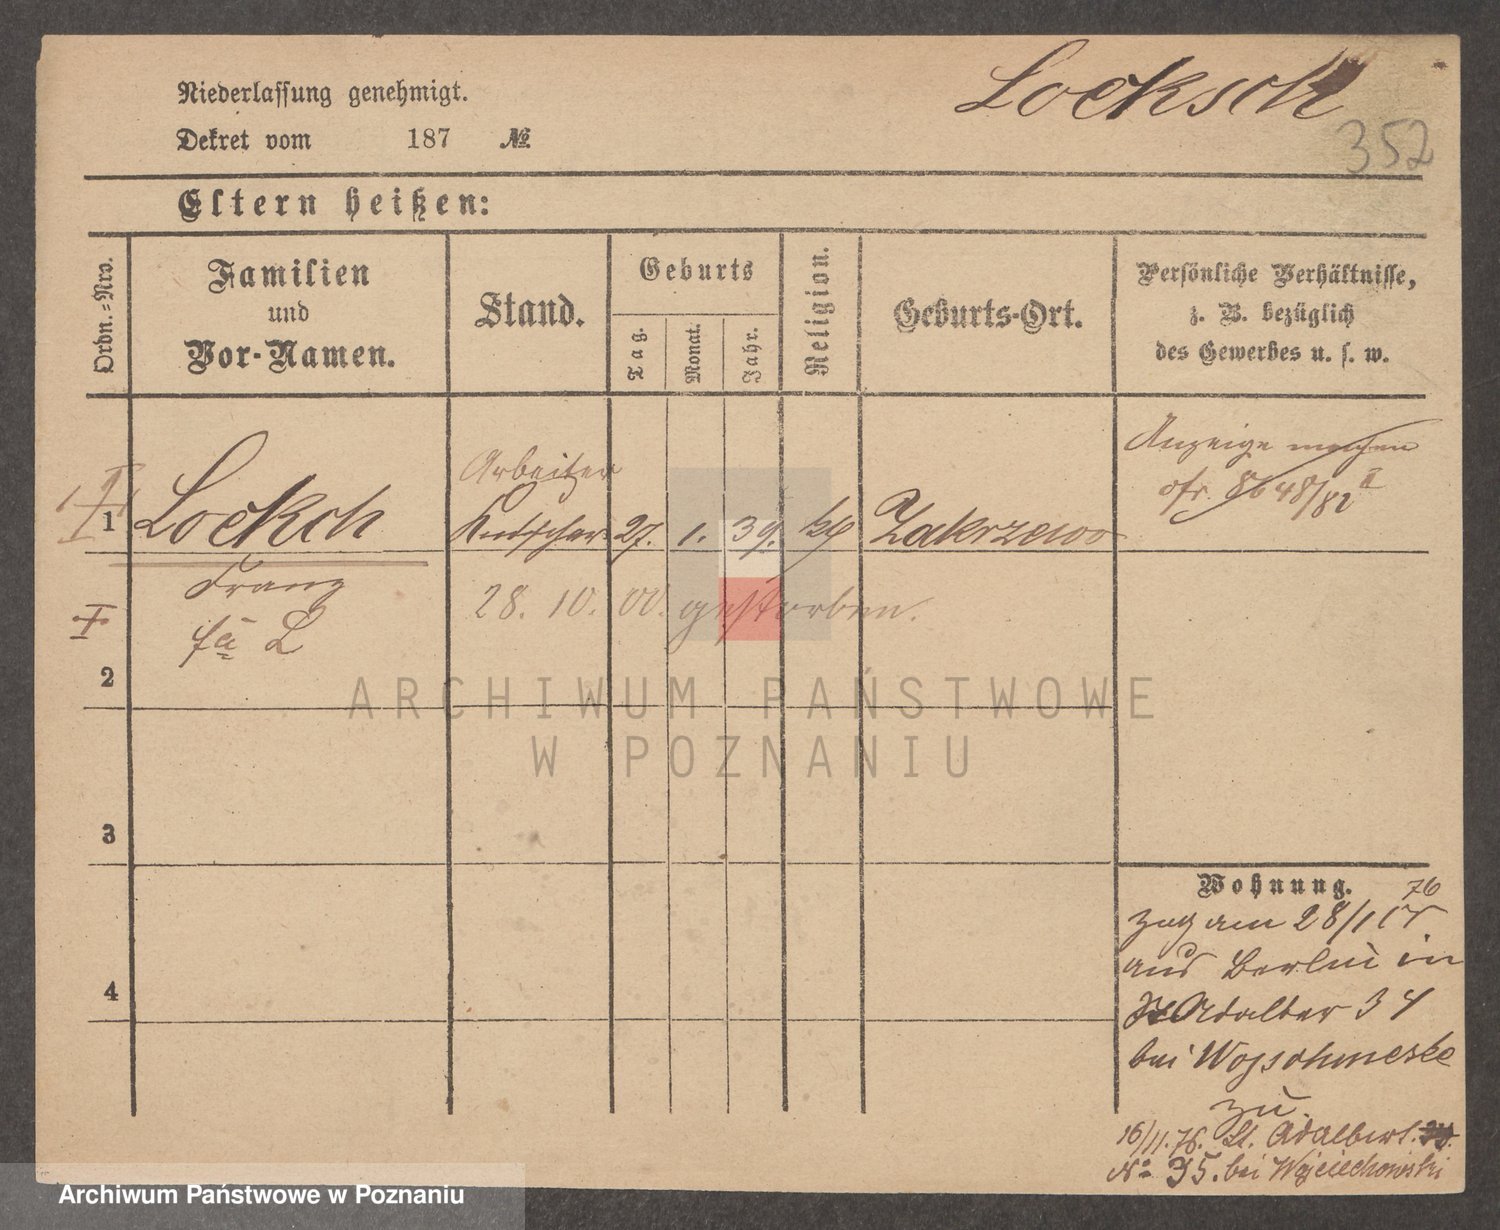 Niederlassung genehmigt.
Dekret vom 187 №
Locksch
352
Eltern heißen:
Ordn.-Nro.
Familien
und
Vor-Namen.
Stand.
Geburts
Tag.
Monat.
Jahr.
Religion.
Geburts-Ort.
Persönliche Verhältnisse,
z. B. bezüglich
des Gewerbes u. s. w.
1
Lockch
Franz
Arbeiter
Kutscher
27. 1. 39.
Zakrzewo
Anzeige machen
8648/82 II
28. 10. 00. gestorben.
2
ARCHIWUM PAŃSTWOWE
W POZNANIU
3
4
Wohnung.
76
zog am 28/1
aus Berlin in
St Adalber 34
bei
zu.
16/11.76. St. Adalbert.
No 35. bei Wojciechowski
Archiwum Państwowe w Poznaniu